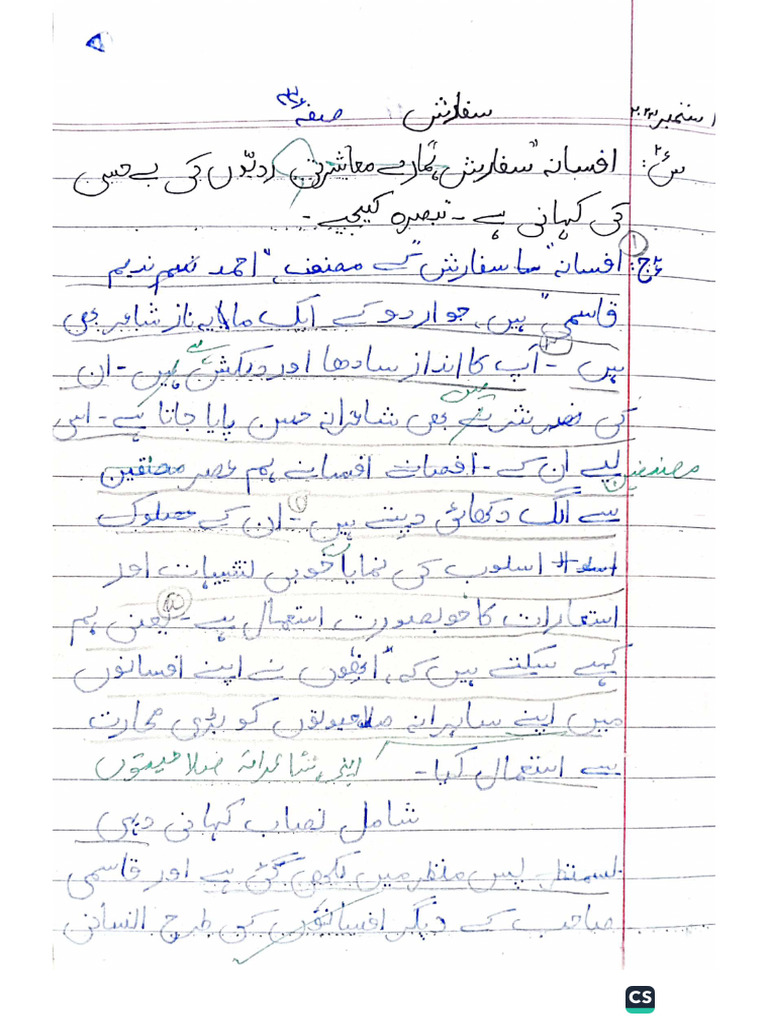 ۱ ستمبر ۲۰۲۳ سفارش صفحہ
س: افسانہ "سفارش" ہمارے معاشرتی رویّوں کی بے حسی
کی کہانی ہے۔ تبصرہ کیجیے۔
ج: افسانہ "سفارش" کے مصنف "احمد ندیم
قاسمی" ہیں، جو اردو کے ایک مایہ ناز شاعر بھی
ہیں۔ آپ کا انداز سادھا اور دلکش ہے۔ ان
کی نثر میں بھی شاعرانہ حسن پایا جاتا ہے۔ اسی
لیے ان کے افسانے ہم عصر مصنفین
مصنفین
سے الگ دکھائی دیتے ہیں۔ ان کے
اسلوب کی نمایا خوبی تشبیہات اور
استعارات کا خوبصورت استعمال ہے۔ یعنی ہم
کہے سکتے ہیں کہ، انھوں نے اپنے افسانوں
میں اپنے صلاحیتوں کو بڑی مہارت
سے استعمال کیا۔ اپنی شاعرانہ صلاحیتوں
شامل نصاب کہانی دہی
پس منظر میں لکھی گئی ہے اور قاسمی
صاحب کے دیگر افسانوں کی طرح انسانی
CS